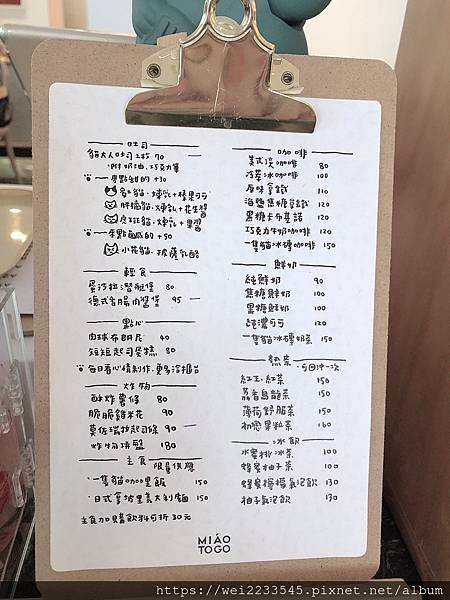 吐司
貓大人吐司2片 70
·附奶油.巧克力單
來點甜的 +30
賓士貓.煉乳+榛果可可
胖橘貓.煉乳+花生醬
虎斑貓.煉乳+果醬
來點鹹的 +50
小花貓.披薩乳酪
輕食
蛋沙拉潛艇堡 80
德式香腸肉醬堡 95
點心
肉球布朗尼 40
短短起司蛋糕 80
每日看心情制作.更多洽櫃台
炸物
酥炸薯條 80
脆脆雞米花 90
莫佐瑞拉起司條 90
炸物拼盤 180
主食 限量供應
·一隻貓咖哩飯 150
·日式拿波里義大利麵 150
主食加購飲料可折30元
咖啡
美式淡咖啡 80
冷萃冰咖啡 100
原味拿鐵 110
海鹽焦糖拿鐵 120
黑糖卡布其諾 120
巧克力牛奶咖啡 120
一隻貓冰磚咖啡 150
鮮奶
純鮮奶 90
焦糖鮮奶 100
黑糖鮮奶 100
純濃可可 120
一隻貓冰磚奶茶 150
熱茶 ·可回沖一次
紅玉.紅茶 150
荔香烏龍茶 150
薄荷舒服茶 150
初戀果粒茶 160
冰飲
水蜜桃冰茶 100
蜂蜜柚子茶 100
蜂蜜檸檬氣泡飲 130
柚子氣泡飲 130
MIÁO
TOGO
https://wei2233545.pixnet.net/album